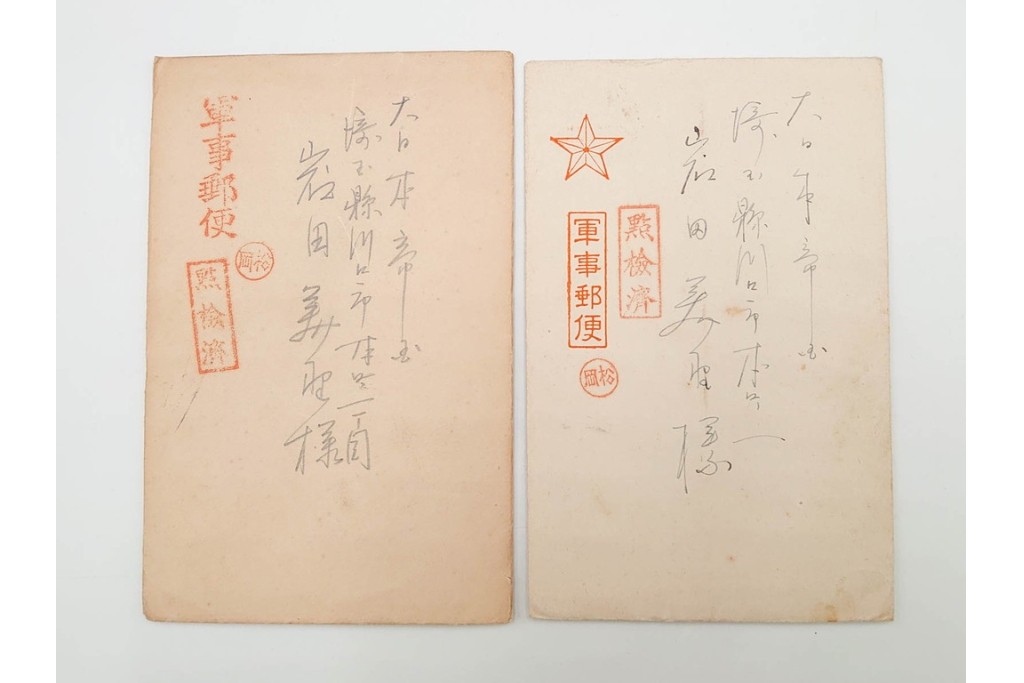 大日本帝国
埼玉縣川口市本町一丁目
岩田美聖様
軍事郵便
松岡
點檢済
大日本帝国
埼玉縣川口市本町一
岩田美聖様
點檢濟
軍事郵便
松岡